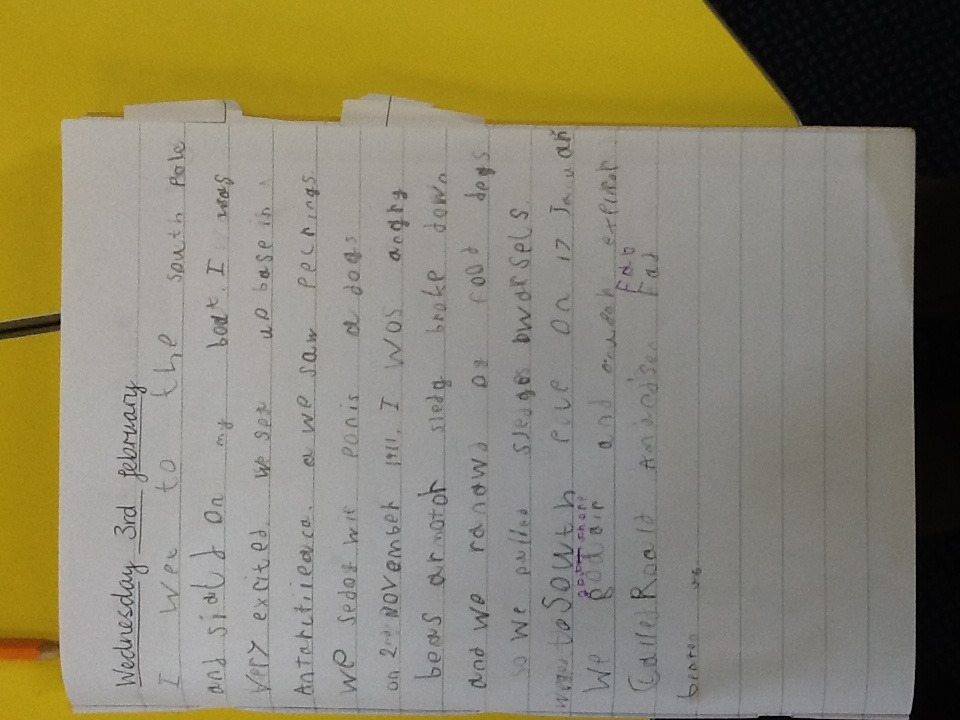 Wednesday 3rd february
I wet to the south Pole
and siald on my boat. I was
very excited. we set up base in
Antartitieaca. a we saw pecnings.
we sedof wit ponis a dogs
on 2nd NOVEMBER 1911. I was angry
becas armotor sledg broke down
and we ranawd of food degs
so we pulled sledges bwarsels
to South pole on 17 Januar
We got there and
Called Roald Amandsen Fad
beaten us